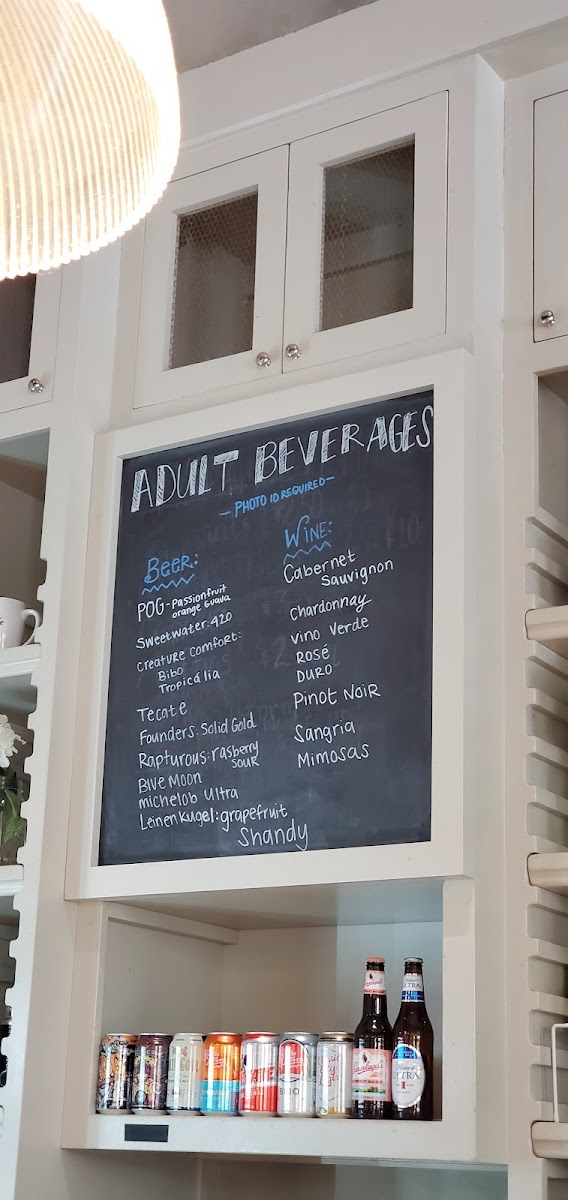 ADULT BEVERAGES
- PHOTO ID REQUIRED -
Beer:
POG - Passionfruit
orange Guava
Sweetwater: 420
Creature Comfort:
Bibo
Tropicália
Tecate
Founders: Solid Gold
Rapturous: rasberry
SOUR
BlUE MOON
michelob Ultra
Leinenkugel: grapefruit
Shandy
WINE:
Cabernet
Sauvignon
Chardonnay
vino Verde
ROSÉ
DURO
PINOT NOIR
Sangria
Mimosas
BIBO
ULTRA
ULTRA